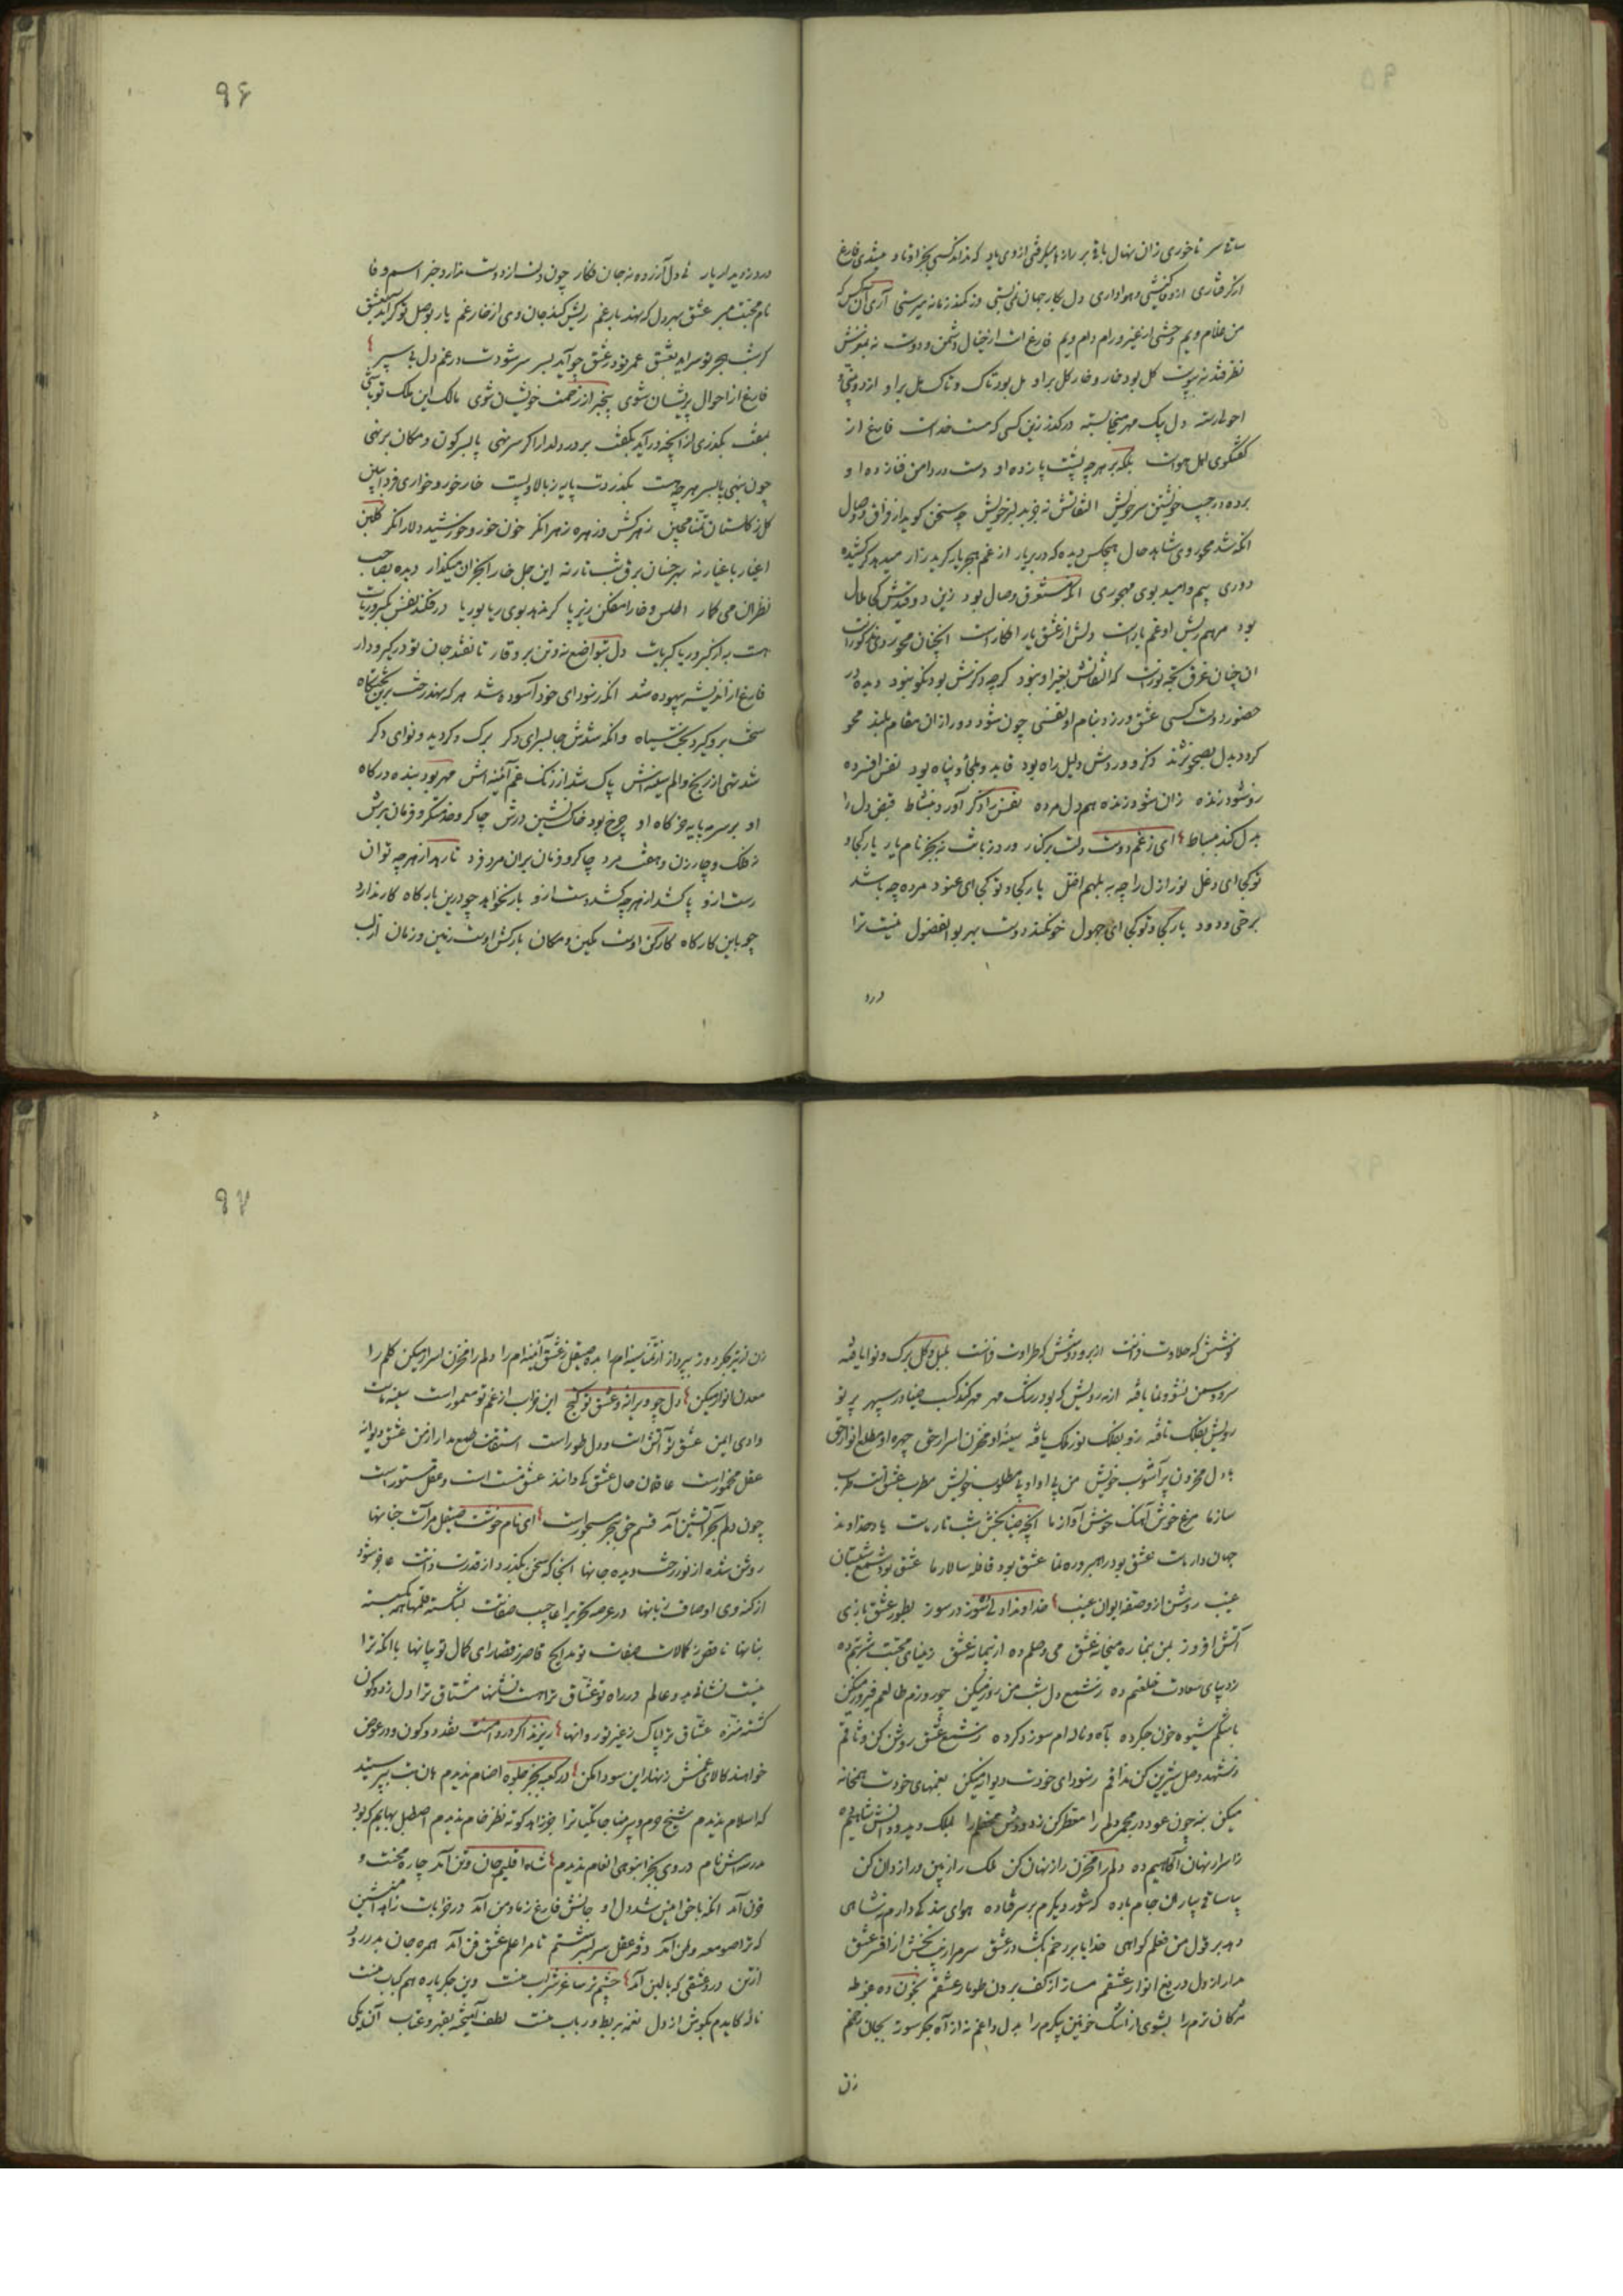 از گرفتاری
من غلام ویم وحشی از غیر و رام دام ویم فارغ است از خیال دشمن و دوست نه بمغزش
نظر فتد نه بپوست گل بود خار و خار گل بر او مل بود تاک و تاک مل بر او
دل بیک مهر
گفتگوی اهل هواست بلکه بر هر چه پشت پا زده او دست در دامن فنا زده او
برده در جیب خویشتن سر خویش التفاتش نه جز بدلبر خویش چه سخن گوید از فراق و وصال
انکه شد محو روی شاهد حال هیچکس دیده که در بر یار از غم هجر یار گرید زار
دوری بیم و امید بوی مهجوری انکه مستغرق وصال بود زین دو قیدش کجا ملال
بود مرهم ریش او غم یار است دلش از عشق یار افکار است
ان چنان غرق که التفاتش بغیر او نبود گرچه ذکرش بود نکو نبود دیده در
حضور دوست کسی عشق ورزد بنام او نفسی چون شود دور از ان مقام بلند محو
گردد بدل ذکر و وردش دلیل راه بود قاید و ملجأ و پناه بود نفس افسرده
زو شود زنده زان شود زنده هم دل مرده نفس را ذکر آورد بنشاط قبض دل را
بدل کند ببساط ای ز غم دوست دلت برکنار ورد زبانت نه بجز نام یار یار کجا و
تو کجا ای دغل نور ازل را چه به بلهم اضل یار کجا و تو کجا ای عنود مرده چه باشد
برحی ودود یار کجا و تو کجا ای جهول خو نکند دوست بهر بوالفضول نیست ترا
درد
۹۶
درد ز دیدار یار نی دل آزرده نه جان فکار چون دلت از دوست ندارد خبر اسم وفا
نام محبت مبر عشق بهر دل که نهد بار غم ریش کند جان وی از خار غم یار بوصل تو گر آید بعشق
گر شب هجر تو سر آید بعشق عمر تو در عشق چو آید بسر سر شودت در غم دل پی سپر
فارغ از احوال پریشان شوی بیخبر از زحمت خویشان شوی مالک این ملک
بگذری از آنچه در آید بگفت بر در دلدار اگر سر نهی پا بسر کون و مکان بر نهی
چون بنهی پا بسر هر چه هست بگذردت پایه ز بالا و پست خار خور و خواری
گل ز گلستان تمنا مچین زهر کش و زهره زهرا نگر خون خور و خورشید دلارا نگر
نظران می گمار اطلس و خارا مفکن زیر پا گر ندهد بوی ریا بوریا
هست به از کبر و ریا کبریات دل بتواضع نه و تن بر وقار تا نفتد جان تو در گیرودار
فارغ از اندیشه بیهوده شد انکه ز سودای خود آسوده شد هر که نهد رخت برین
سخت برو گیرد بخت سیاه وانکه شدش جا بسرای دگر برگ دگر دید و نوای دگر
شد تهی از رنج و الم سینه‌اش پاک شد از زنگ غم آئینه‌اش مهر بود بنده درگاه
او بر سر مه پایه خرگاه او چرخ بود خاک نشین درش چاکر و خدمتگر و فرمان برش
نه فلک و چار زن و هفت مرد چاکر و فرمان بر ان مرد فرد تا رهد از هر چه توان
رست ازو پا کشد از هر چه کشد دست ازو بار نخواهد چو درین بارگاه کار ندارد
چو باین کارگاه کارکن اوست مکین و مکان بارکش اوست زمین و زمان
۹۷
نوشش که حلاوت نداشت از بر و دوشش که طراوت نداشت بلبل و گل برگ و نوا یافته
سرو و سمن نشو و نما یافته از مه رویش که بود رشک مهر مهر کند کسب ضیا در سپهر پرتو
رویش بفلک تافته زو بفلک نور ملک یافته سینه او مخزن اسرار حق چهره او مطلع انوار حق
با دل محزون پر آشوب خویش من پی او او پی مطلوب خویش مطرب عشق است طرب
ساز ما مرغ خوش آهنگ خوش آواز ما آنچه ضیا بخش شب تار ماست یاد خداوند
جهاندار ماست عشق بود راهبر و ره نما عشق بود قافله سالار ما عشق بود شمع شبستان
غیب روشن ازو صفه ایوان غیب خداوندا دلی ده شور در سوز بطور عشق بازی
آتش افروز بمن بنما ره میخانه عشق می وصلم ده از پیمانه عشق ز مینای محبت شربتم ده
ز دیبای سعادت خلعتم ده ز شمع دل شب من روز میکن چو روزم طالعم فیروز میکن
باشکم شیوه خون جگر ده بآه و ناله‌ام سوز دگر ده ز شمع عشق روشن کن وثاقم
ز شهد وصل شیرین کن مذاقم ز سودای خودت دیوانه میکن بغمهای خودت همخانه
میکن بنه چون عود در مجمر دلم را معطر کن ز دودش محفلم را
ز اسرار نهان آگاهیم ده دلم را مخزن راز نهان کن
بیا ساقی بیار آن جام باده که شور دیگرم بر سر فتاده هوای بندگی دارم نه شاهی
دهد بر قول من فعلم گواهی خدایا بر رخم بگشا در عشق سرم را زیب بخش از افسر عشق
مدار از دل دریغ انوار عشقم مساز از کف برون طومار عشقم بخون ده غوطه
مژگان ترم را بشوی از اشک خونین پیکرم را بدل داغم نه از آه جگر سوز بجان زخم
زن
زن از تیر جگر دوز بپرداز از تمنا سینه‌ام را بده صیقل ز عشق آئینه‌ام را دلم را مخزن اسرار میکن گلم را
معدن انوار میکن دل چو ویرانه و عشق تو گنج این خراب از غم تو معمور است سینه ماست
وادی ایمن عشق تو آتش است و دل طور است استقامت طمع مدار از من عشق دیوانه
عقل مخمور است عاقلان حال عشق کی دانند عشق مست است و عقل مستور است
چون دلم بحر آتشین آمد قسم حق ببحر مسجور است ای نام خوشت صیقل مرآت جنانها
روشن شده از نور رخت دیده جانها آنجا که سخن بگذرد از قدرت ذاتت عاجز شود
از کنه وی اوصاف زبانها در عرصه تحریر اعاجیب صفاتت بشکسته قلمها همه بگسسته
بنانها ناقص ز کمالات صفات تو مدایح قاصر ز قصارای کمال تو بیانها با آنکه ترا
نیست نشانی بدو عالم در راه تو عشاق تراهست نشانها مشتاق ترا دل ز دو کون
گشته منزه عشاق ترا پاک ز غیر تو روانها ریزند اگر در دامنت نقد دو کون در عوض
خواهند کالای غمش زنهار این سودا مکن در کعبه بجز جلوه اصنام ندیدم
که اسلام ندیدم شیخ حرم و پیر مناجات جز زاهد کوته نظر خام ندیدم اصطبل بهایم که بود
مدرسه‌اش نام در وی بجز انبوهی انعام ندیدم شاه اقلیم جان و تن آمد چاره محنت و
حزن آمد آنکه با حق انیس شد دل او جانش فارغ ز ما و من آمد در خرابات زاهد
که ترا صومعه وطن آمد دفتر عقل سر بسر شستم تا مرا علم عشق فن آمد همره جان بدر رود
از تن درد عشقی که با لبن آمد چشم تر ساغر شراب منست وین جگر پاره هم کباب منست
ناله کایدم بگوش از دل نغمه بربط و رباب منست لطف آمیخته بقهر و عتاب